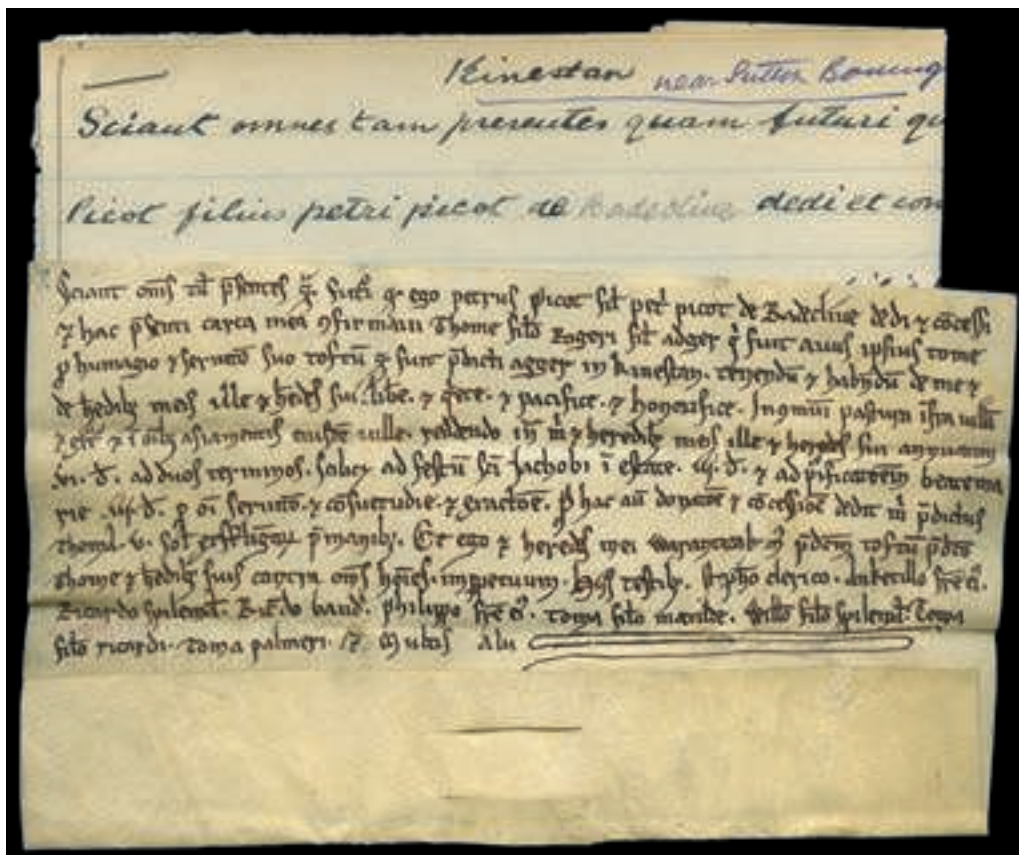 Kinestan near Sutton Boning
Sciant omnes tam presentes quam futuri qu
Picot filius petri picot de Radeclive dedi et con
Sciant om̄s tā p̄sentes q̄ᵃ futᵉi qᵈ ego petrus picot fil̄ petⁱ picot de Radeclive dedi ⁊ cōcessi
⁊ hac p̄senti carta mea ꝯfirmaui Thome filō Rogeri fil̄ adger q̄ fuit auus ipsius tome
p̱ humagio ⁊ seruitō suo toftū qᵈ fuit p̄dicti agger in kinestan. tenendū ⁊ habēdū de me ⁊
de h̄edibꝫ meis ille ⁊ h̄edes sui. libe. ⁊ q̄ete. ⁊ pacifice. ⁊ honorifice. In ꝯmuni pastura īfra uillā
⁊ ext̄ ⁊ ī oībꝫ asiamentis eiusdē uille. reddendo in̄ m̄ ⁊ heredibꝫ meis ille ⁊ heredes sui annuatim
.vi. d̄. ad duos terminos. scilicꝫ ad festū sc̄i Jachobi ī estate. iij. d̄. ⁊ ad p̄ificationem beate ma
rie .iij. d̄. p̱ oī seruitō. ⁊ cōsuetudīe. ⁊ exactōe. P̱ hac aū donatōe ⁊ cōcessiōe dedit m̄ p̄dictus
thomas. v. sol̄ esterlīgoꝝ p̄ manibꝫ. Et ego ⁊ heredes mei warantizabimꝰ p̄dcm̄ toftū p̄dco
thome ⁊ h̄edibꝫ suis contra om̄s hōies. imp̱petuum. His testibꝫ. clerico. fr̄e eiꝰ.
Ricardo spilemā. Ric̄do baud. philippo fr̄e eiꝰ. toma filō matilde. Willō filō spilemā. Toma
filō ricardi. Toma palmeri. ⁊ Multis Aliis